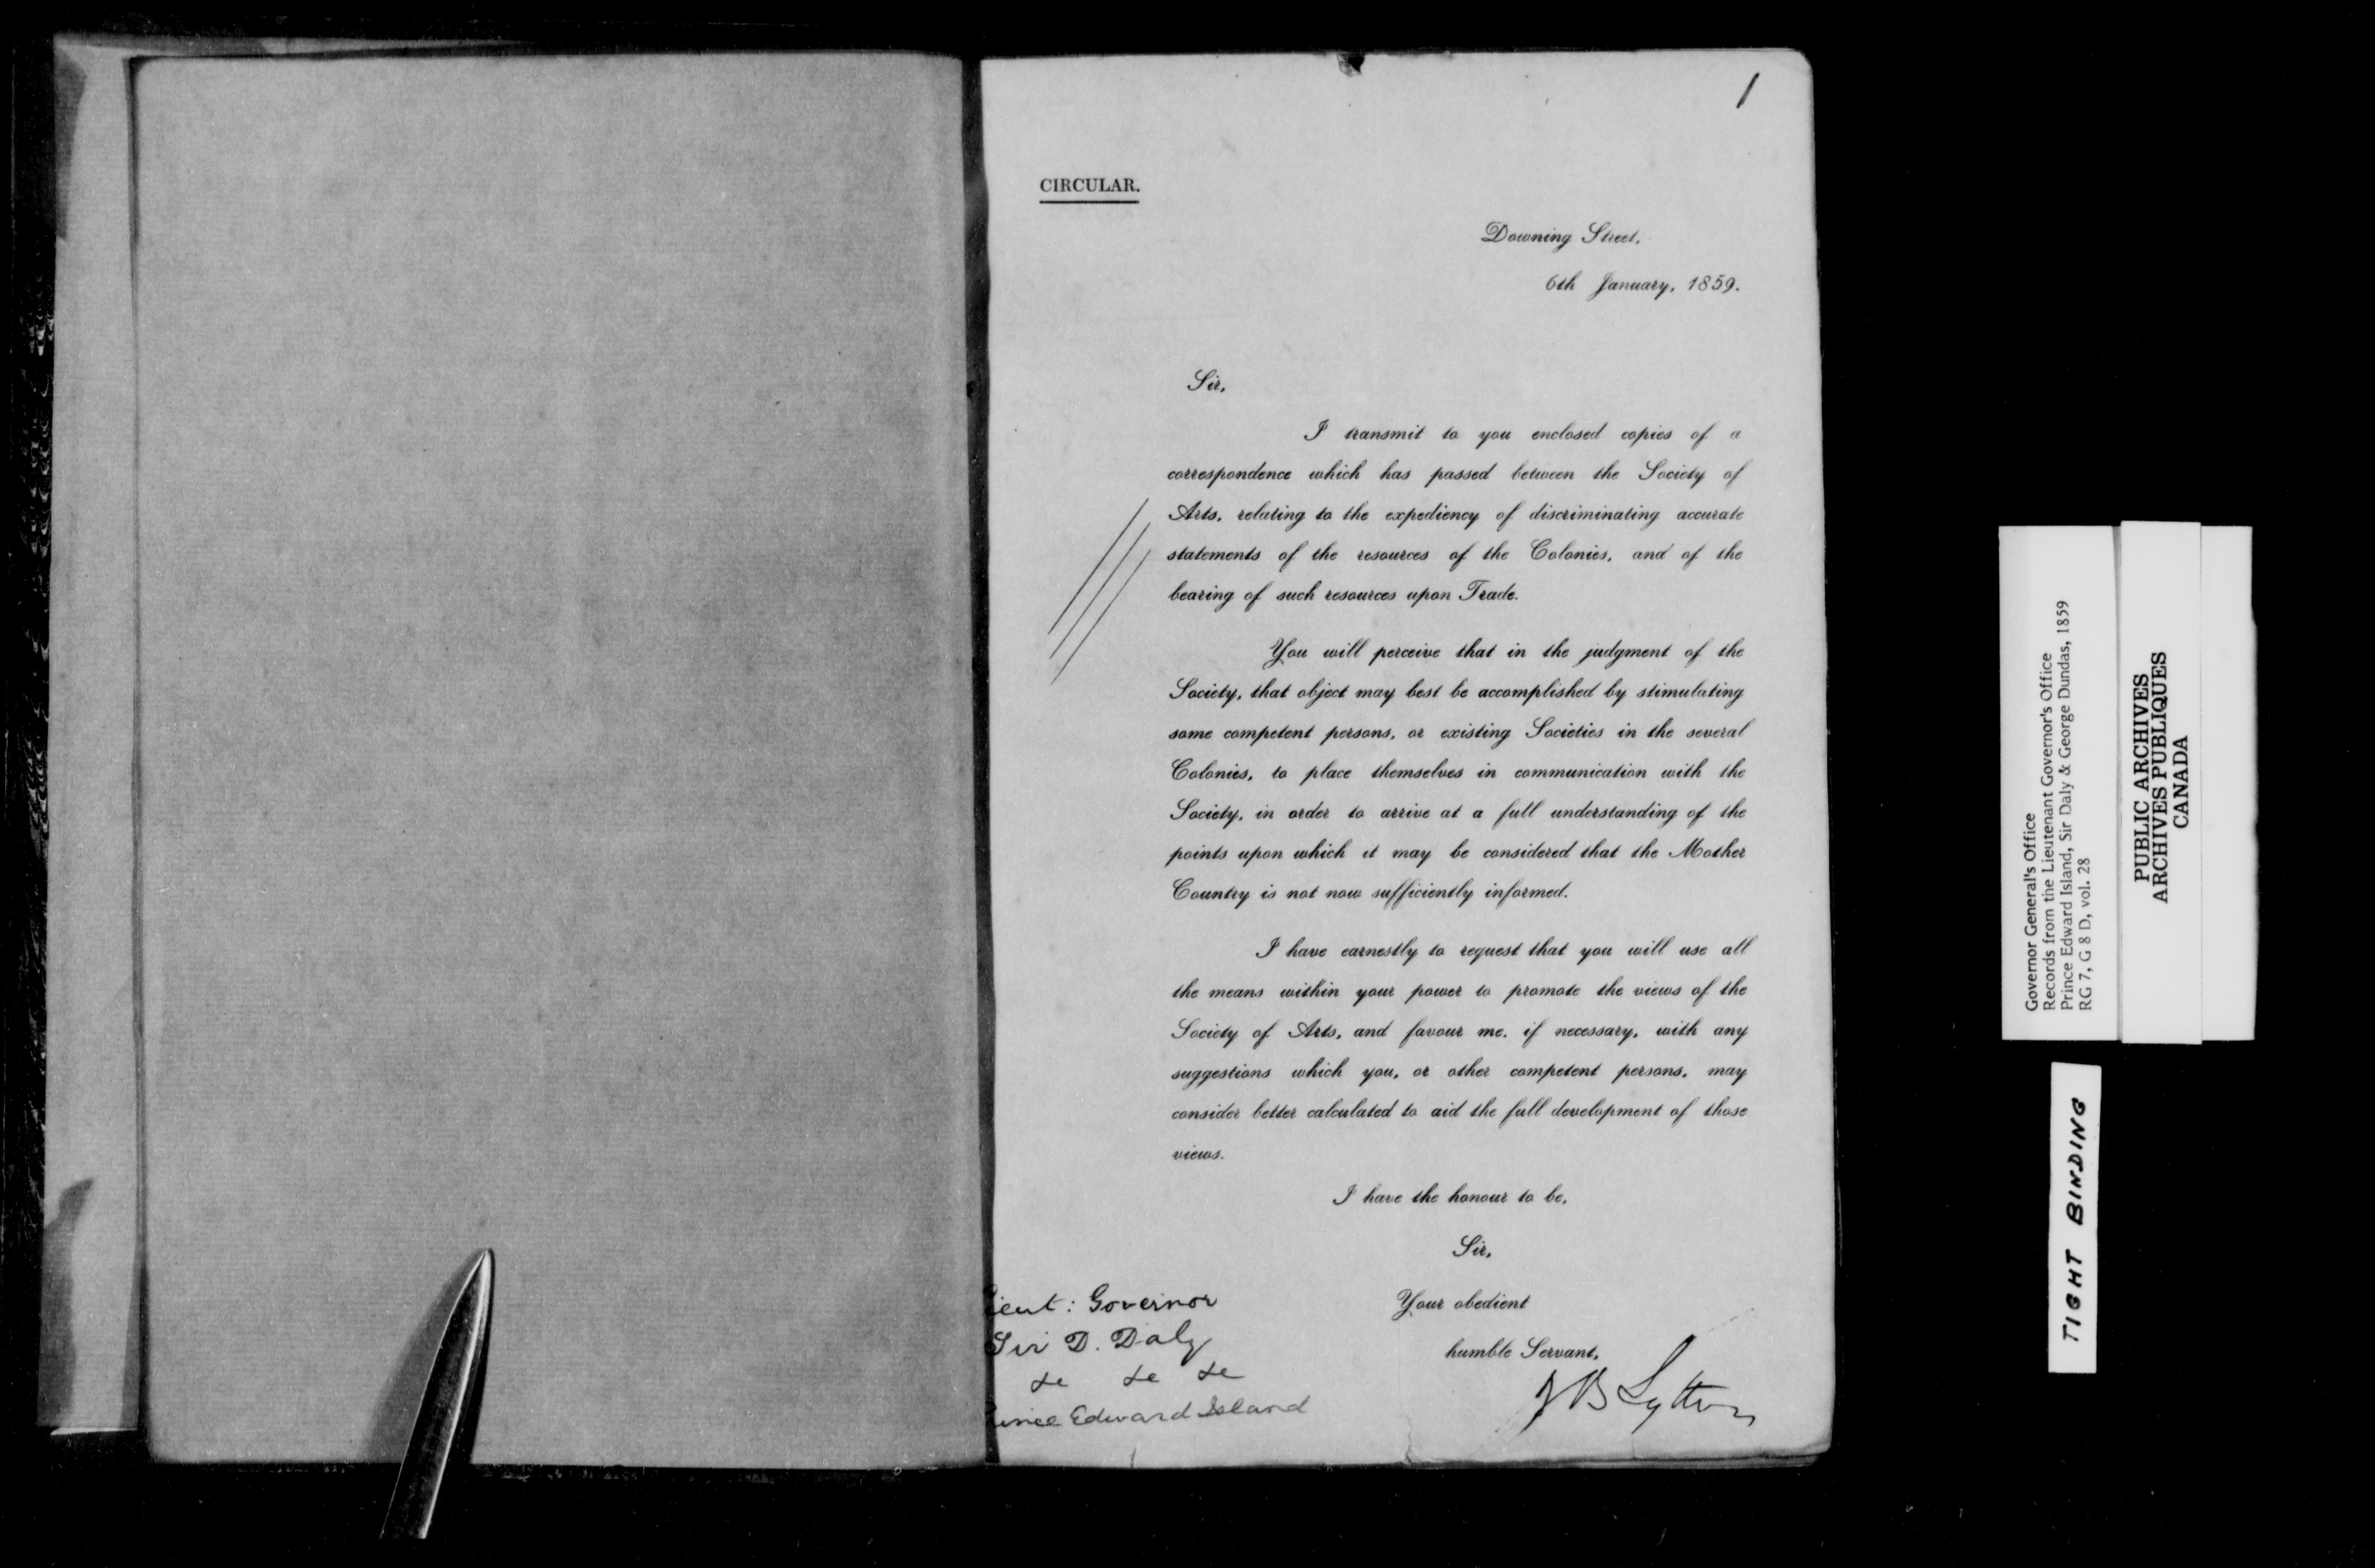 1
CIRCULAR.
Downing Street,
6th January, 1859.
Sir,
I transmit to you enclosed copies of a
correspondence which has passed between the Society of
Arts, relating to the expediency of discriminating accurate
statements of the resources of the Colonies, and of the
bearing of such resources upon Trade.
You will perceive that in the judgment of the
Society, that object may best be accomplished by stimulating
some competent persons, or existing Societies in the several
Colonies, to place themselves in communication with the
Society, in order to arrive at a full understanding of the
points upon which it may be considered that the Mother
Country is not now sufficiently informed.
I have earnestly to request that you will use all
the means within your power to promote the views of the
Society of Arts, and favour me, if necessary, with any
suggestions which you, or other competent persons, may
consider better calculated to aid the full development of those
views.
I have the honour to be,
Sir,
Your obedient
humble Servant,
Lytton
ieut: Governor
Sir D. Daly
&c &c &c
rince Edward Island
Governor General's Office
Records from the Lieutenant Governor's Office
Prince Edward Island, Sir Daly & George Dundas, 1859
RG 7, G 8 D, vol. 28
PUBLIC ARCHIVES
ARCHIVES PUBLIQUES
CANADA
TIGHT BINDING